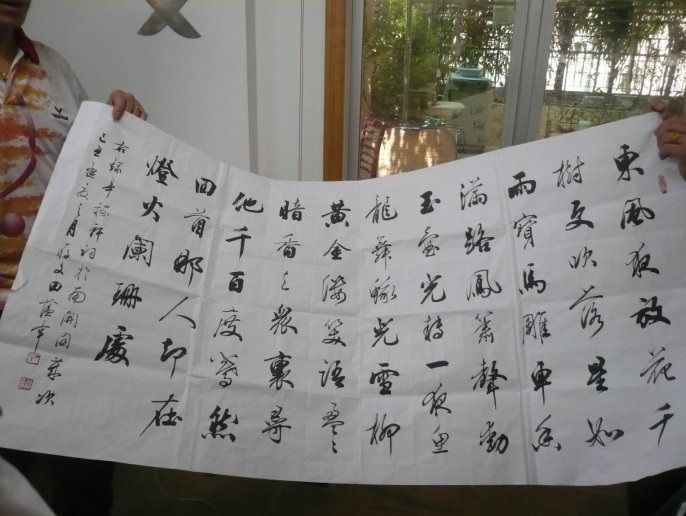 東風夜放花千
樹更吹落星如
雨寶馬雕車香
滿路鳳簫聲動
玉壺光轉一夜魚
龍舞蛾兒雪柳
黃金縷笑語盈々
暗香去衆裏尋
他千百度驀然
回首那人却在
燈火闌珊處
右錄辛稼軒詞於南開園
己丑孟夏之月 田蘊章